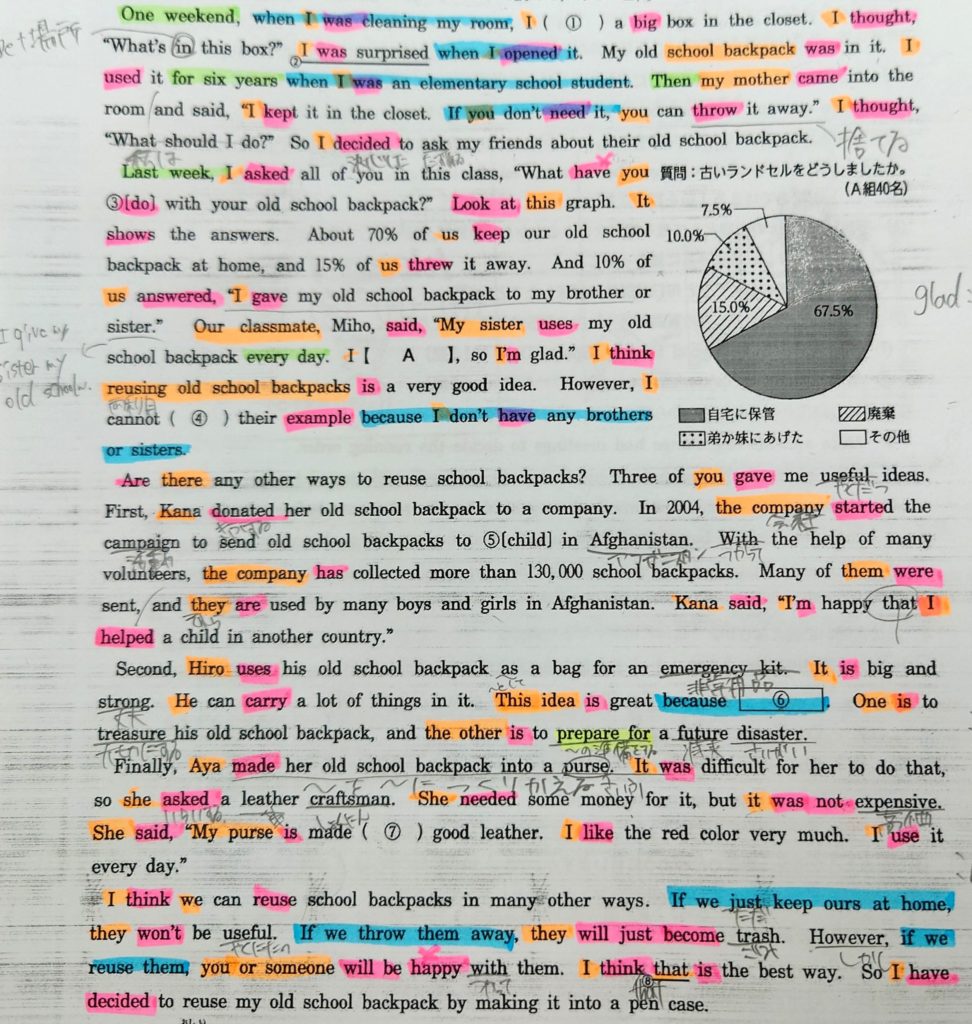 One weekend, when I was cleaning my room, I ( ① ) a big box in the closet. I thought,
“What's in this box?” I was surprised when I opened it. My old school backpack was in it. I
②
used it for six years when I was an elementary school student. Then my mother came into the
room and said, “I kept it in the closet. If you don't need it, you can throw it away.” I thought,
“What should I do?” So I decided to ask my friends about their old school backpack.
捨てる
Last week, I asked all of you in this class, “What have you
③[do] with your old school backpack?” Look at this graph. It
shows the answers. About 70% of us keep our old school
backpack at home, and 15% of us threw it away. And 10% of
us answered, “I gave my old school backpack to my brother or
sister.” Our classmate, Miho, said, “My sister uses my old
school backpack every day. I【 A 】, so I'm glad.” I think
reusing old school backpacks is a very good idea. However, I
cannot ( ④ ) their example because I don't have any brothers
or sisters.
質問:古いランドセルをどうしましたか。
(A組40名)
7.5%
10.0%
15.0%
67.5%
自宅に保管
廃棄
弟か妹にあげた
その他
glad
I give my
sister my
old school
Are there any other ways to reuse school backpacks? Three of you gave me useful ideas.
First, Kana donated her old school backpack to a company. In 2004, the company started the
campaign to send old school backpacks to ⑤[child] in Afghanistan. With the help of many
volunteers, the company has collected more than 130,000 school backpacks. Many of them were
sent, and they are used by many boys and girls in Afghanistan. Kana said, “I'm happy that I
helped a child in another country.”
Second, Hiro uses his old school backpack as a bag for an emergency kit. It is big and
strong. He can carry a lot of things in it. This idea is great because ⑥ . One is to
treasure his old school backpack, and the other is to prepare for a future disaster.
Finally, Aya made her old school backpack into a purse. It was difficult for her to do that,
so she asked a leather craftsman. She needed some money for it, but it was not expensive.
She said, “My purse is made ( ⑦ ) good leather. I like the red color very much. I use it
every day.”
I think we can reuse school backpacks in many other ways. If we just keep ours at home,
they won't be useful. If we throw them away, they will just become trash. However, if we
reuse them, you or someone will be happy with them. I think that is the best way. So I have
⑧
decided to reuse my old school backpack by making it into a pen case.